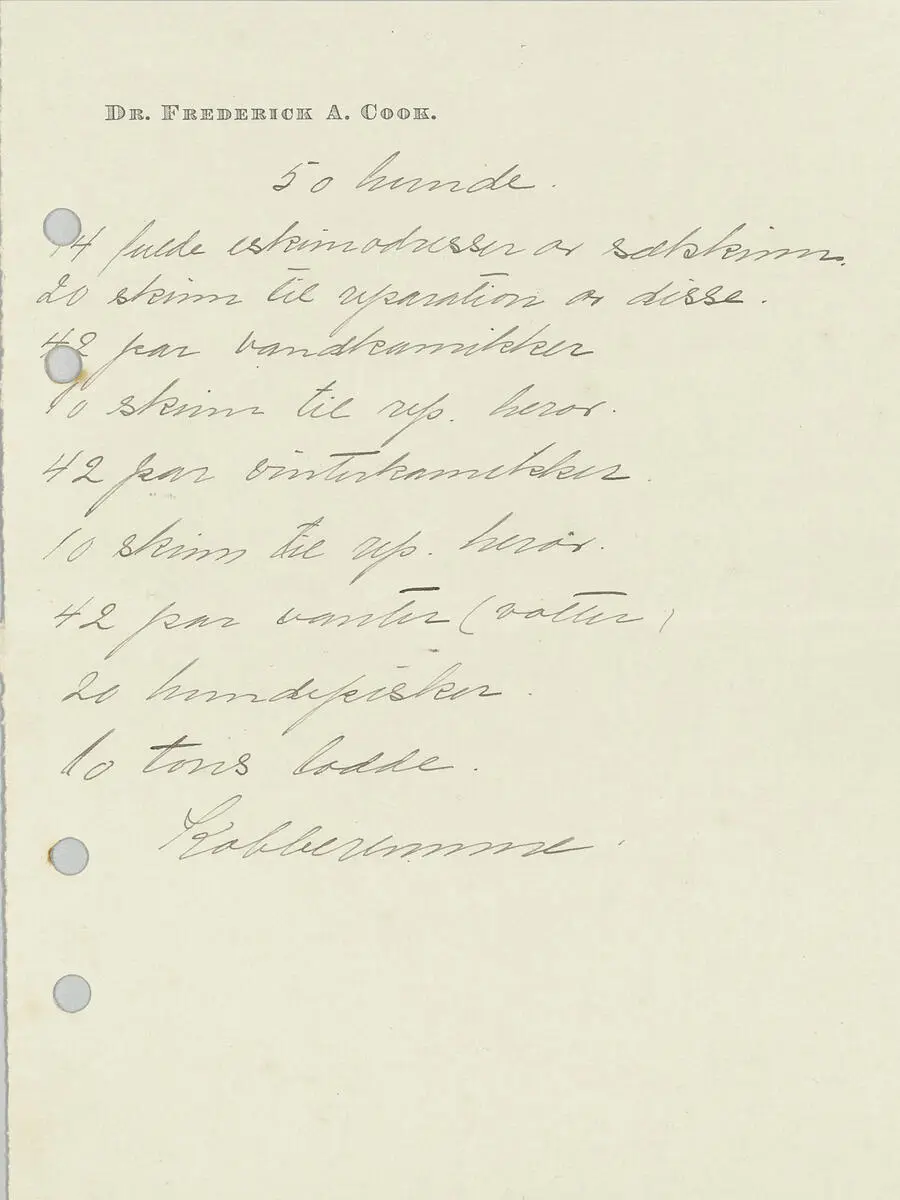 DR. FREDERICK A. COOK.
50 hunde.
14 fulde eskimodresser av sælskinn.
20 skinn til reparation av disse.
42 par vandkamikker
10 skinn til rep. herav.
42 par vinterkamikker.
10 skinn til rep. herav.
42 par vanter (votter)
20 hundepisker.
10 tons lodde.
Kobberemme.